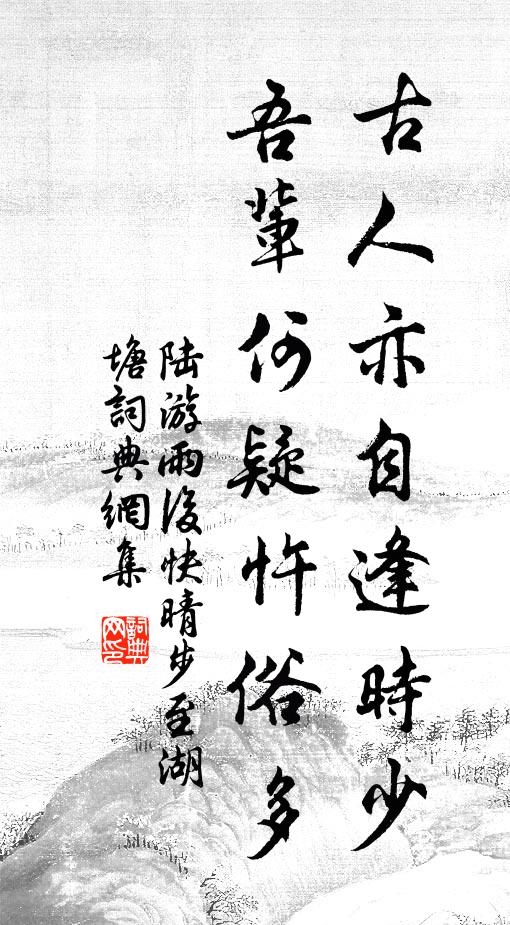 古人亦自逢時少
吾輩何疑忤俗多
陆游雨後快晴步至湖
塘詞典網集
詞典网印